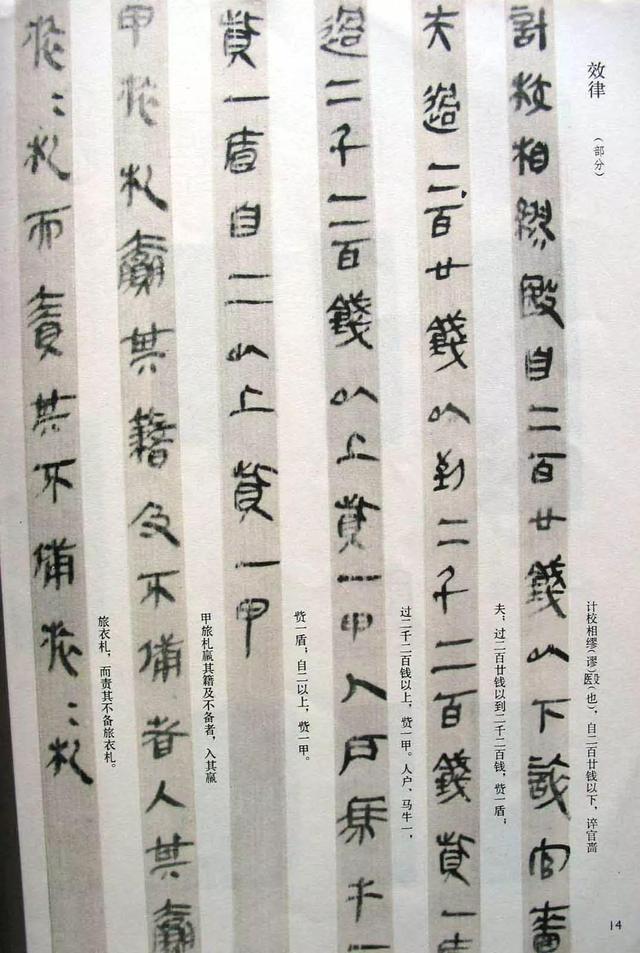 效律
(部分)
計校相繆殹自二百廿錢以下誶官嗇
计校相缪(谬)殹(也),自二百廿钱以下,谇官啬
夫過二百廿錢以到二千二百錢貲一盾
夫;过二百廿钱以到二千二百钱,赀一盾;
過二千二百錢以上貲一甲人戶馬牛一
过二千二百钱以上,赀一甲。人户、马牛一,
貲一盾自二以上貲一甲
赀一盾;自二以上,赀一甲。
甲旅札贏其籍及不備者入其贏
甲旅札赢其籍及不备者,入其赢
旅=札而責其不備旅=札
旅衣札,而责其不备旅衣札。
14